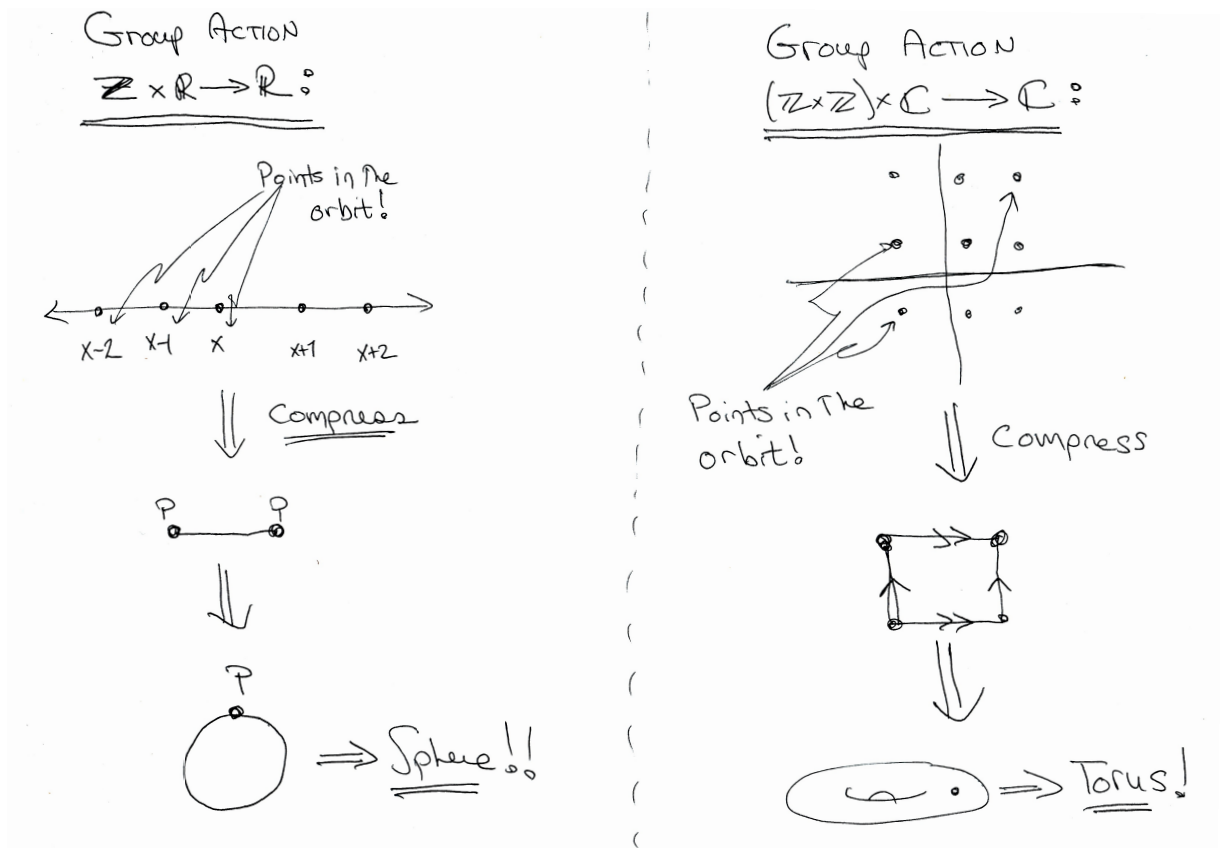 Group ACTION
ℤ × ℝ → ℝ :
Points in The
orbit!
x-2 x-1 x x+1 x+2
Compress
P P
P
⇒ Sphere!!
Group ACTION
(ℤ×ℤ)×ℂ → ℂ :
Points in The
orbit!
Compress
⇒ Torus!